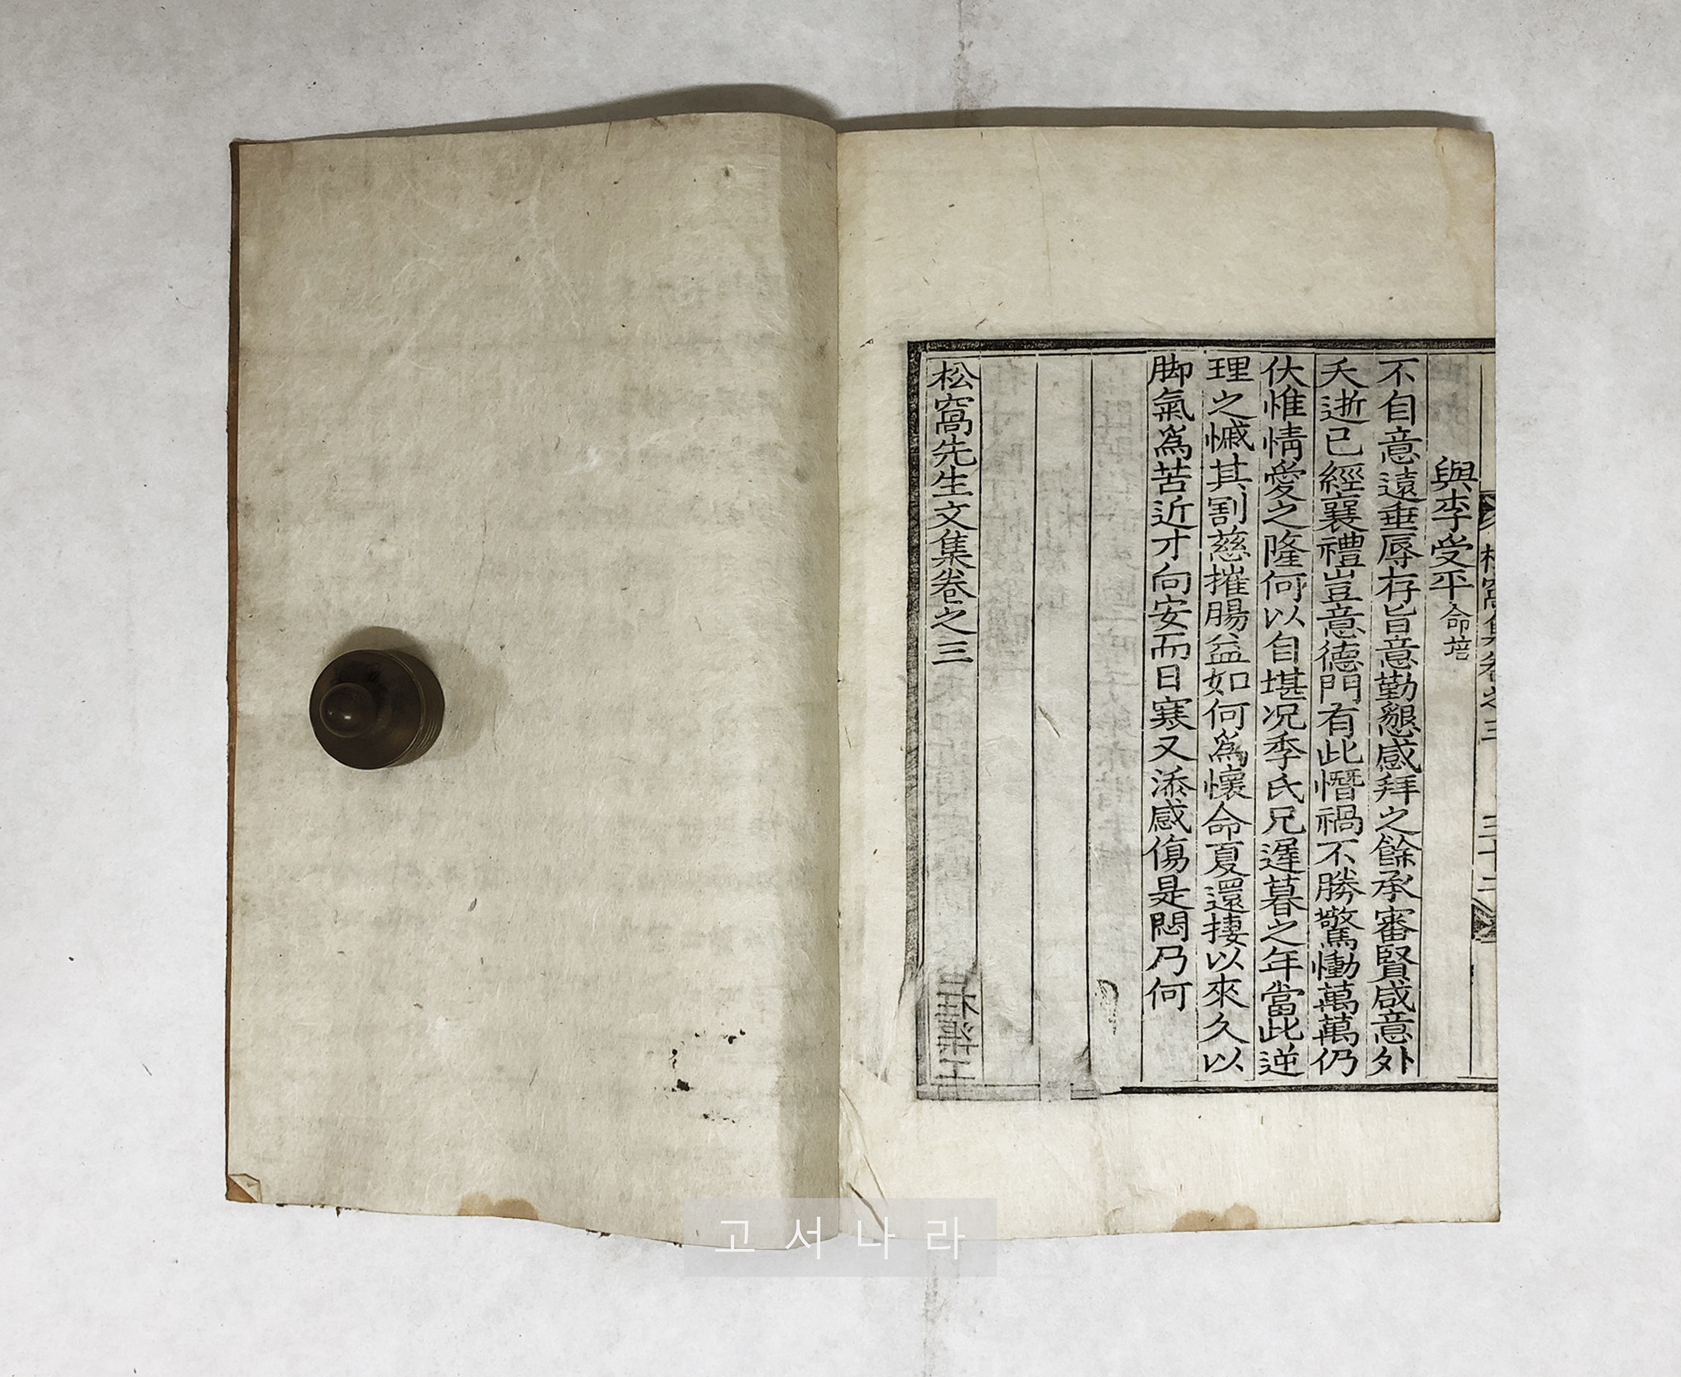 松窩集卷之三 三十二
與李受平命培
不自意遠垂辱存旨意勤懇感拜之餘承審賢咸意外
夭逝已經襄禮豈意德門有此憯禍不勝驚慟萬萬仍
伏惟情愛之隆何以自堪况季氏兄遲暮之年當此逆
理之慽其割慈摧腸益如何爲懷命夏還捿以來久以
脚氣爲苦近才向安而日寒又添感傷是悶乃何
松窩先生文集卷之三
고서나라